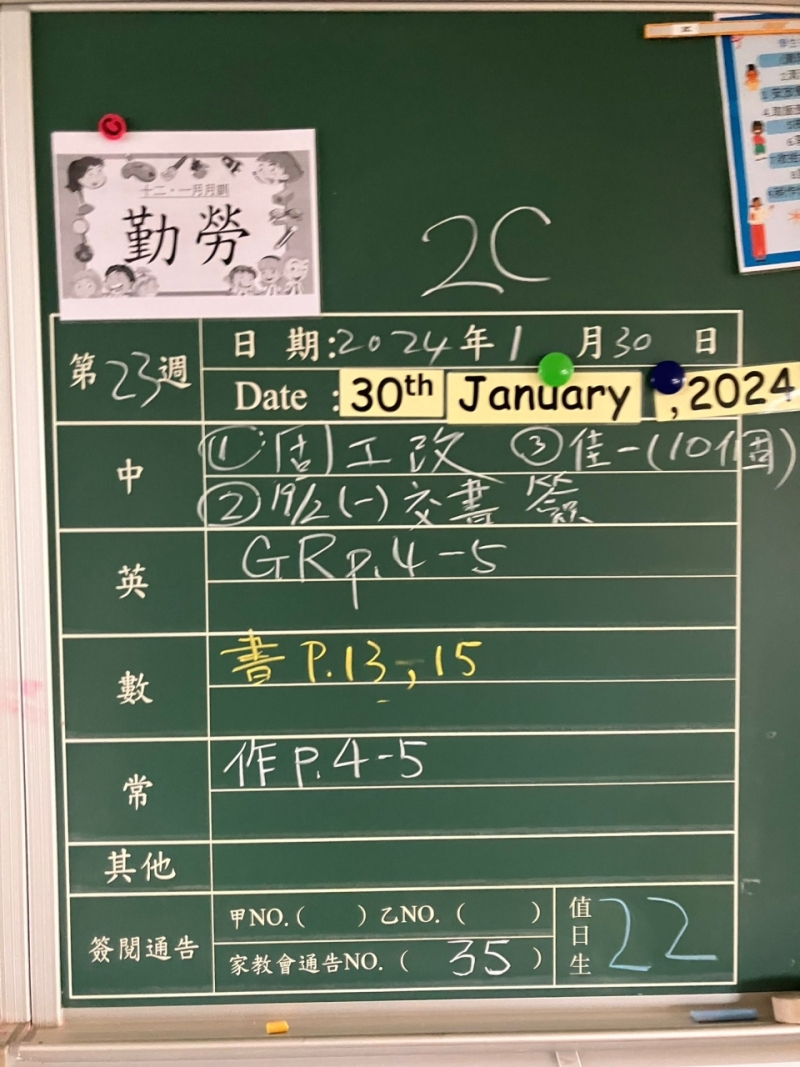 十二、一月月訓
勤勞
2C
第23週
日期:2024年1月30日
Date : 30th January, 2024
中
①
工改 ③佳一(10個)
②19/2(一)交書簽
英
GR p.4-5
數
書 P.13-,15
常
作 P.4-5
其他
簽閱通告
甲NO.( ) 乙NO.( )
家教會通告NO.( 35 )
值日生
22